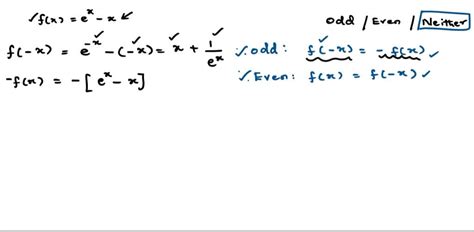 ✓f(x) = eˣ - x ✓
odd / Even / Neither
f(-x) = e⁻ˣ - (-x) = x + 1/eˣ
∵ odd: f(-x) = - f(x) ✓
-f(x) = - [eˣ - x]
∵ Even: f(x) = f(-x) ✓